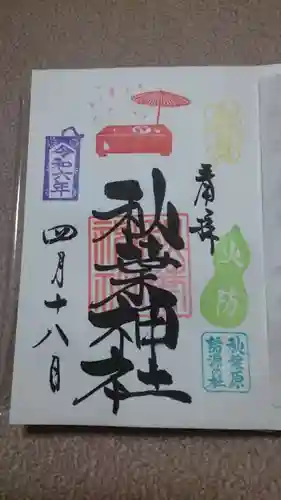 奉拝
火防
秋葉原
諸源の社
秋葉神社
令和六年
四月十八日